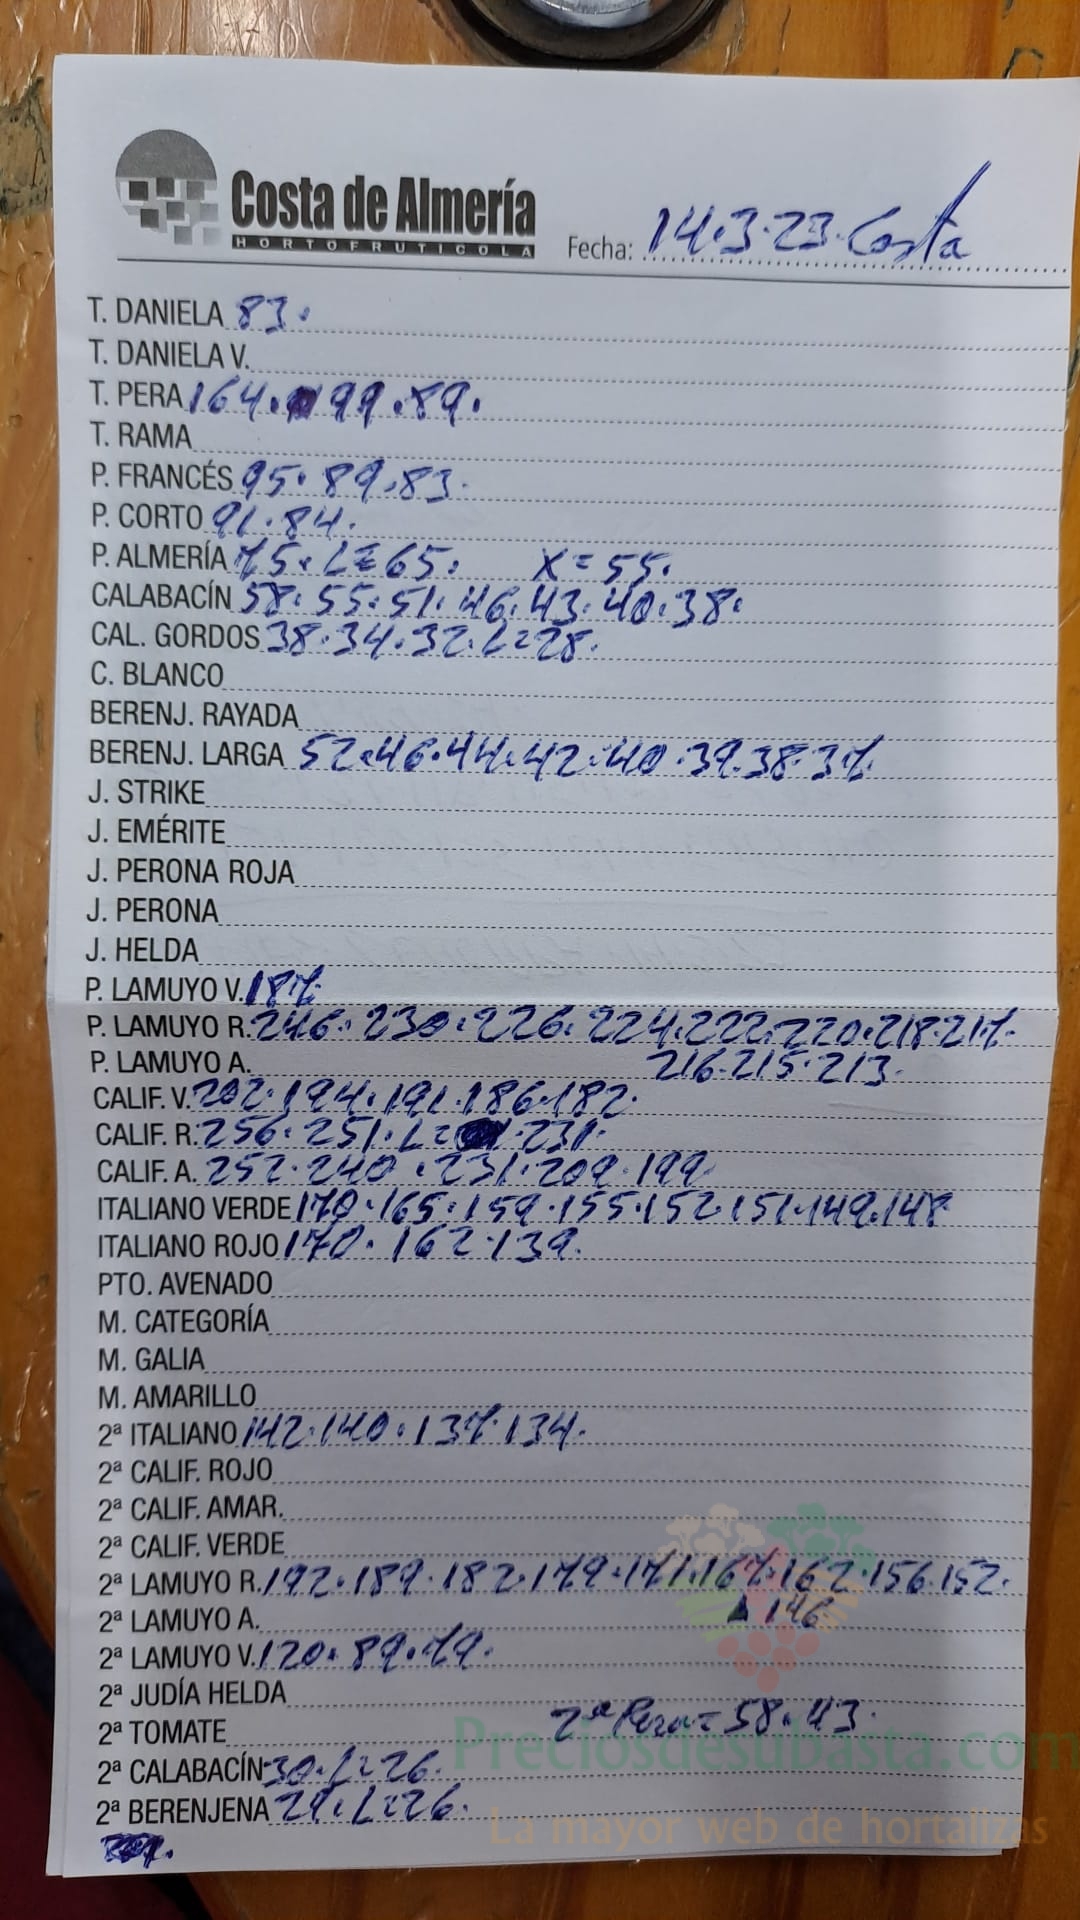 Costa de Almería
HORTOFRUTICOLA
Fecha: 14.3.23. Costa
T. DANIELA 83.
T. DANIELA V.
T. PERA 164. 99.89.
T. RAMA
P. FRANCÉS 95.89.83.
P. CORTO 91.84.
P. ALMERÍA 75. L=65. X=55.
CALABACÍN 58.55.51.46.43.40.38.
CAL. GORDOS 38.34.32.L=28.
C. BLANCO
BERENJ. RAYADA
BERENJ. LARGA 52.46.44.42.40.39.38.37.
J. STRIKE
J. EMÉRITE
J. PERONA ROJA
J. PERONA
J. HELDA
P. LAMUYO V. 187.
P. LAMUYO R. 246.230.226.224.222.220.218.217.
P. LAMUYO A. 216.215.213.
CALIF. V. 202.194.191.186.182.
CALIF. R. 256.251.L= 231.
CALIF. A. 252.240.231.209.199
ITALIANO VERDE 170.165.159.155.152.151.149.148
ITALIANO ROJO 170.162.139.
PTO. AVENADO
M. CATEGORÍA
M. GALIA
M. AMARILLO
2ª ITALIANO 142.140.137.134.
2ª CALIF. ROJO
2ª CALIF. AMAR.
2ª CALIF. VERDE
2ª LAMUYO R. 192.189.182.179.171.167.162.156.152.
2ª LAMUYO A. 146
2ª LAMUYO V. 120.89.79.
2ª JUDÍA HELDA
2ª TOMATE 2ª Pera=58.43.
2ª CALABACÍN 30.L=26.
2ª BERENJENA 29.L=26.
Preciosdesubasta.com
La mayor web de hortalizas